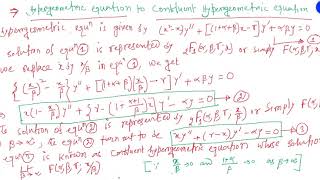 ⇒ Hypergeometric equation to Confluent Hypergeometric equation
Hypergeometric equⁿ is given by (x²-x)y'' + [(1+α+β)x-γ]y' + αβy = 0
solution of equⁿ ① is represented by ₂F₁(α, β, γ, x) or simply F(α, β, γ, x)
we replace x by x/β in equⁿ ①, we get
{(x²/β² - x/β)} y'' + [(1+α+β)(x/β)-γ] y' + αβy = 0
x(1-x/β)y'' + {γ-(1+(1+α)/β)x}y' - αy = 0 → ②
The solution of equⁿ ② is represented by ₂F₁(α, β, γ, x/β) or simply F(α, β, γ, x/β)
β → ∞, equⁿ ② turn out to be xy'' + (γ-x)y' - αy = 0 → ③
equⁿ ③ is known as Confluent hypergeometric equation whose solution
F(α, β, γ, x/β) [∵ x/β → 0 and (1+α)/β → 0 as β → ∞]